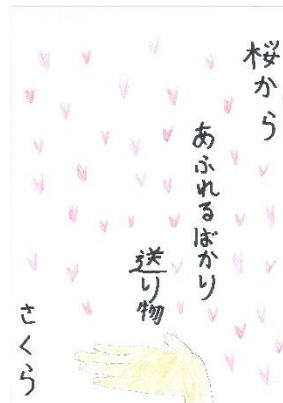 桜から
あふれるばかり
送り物
さくら